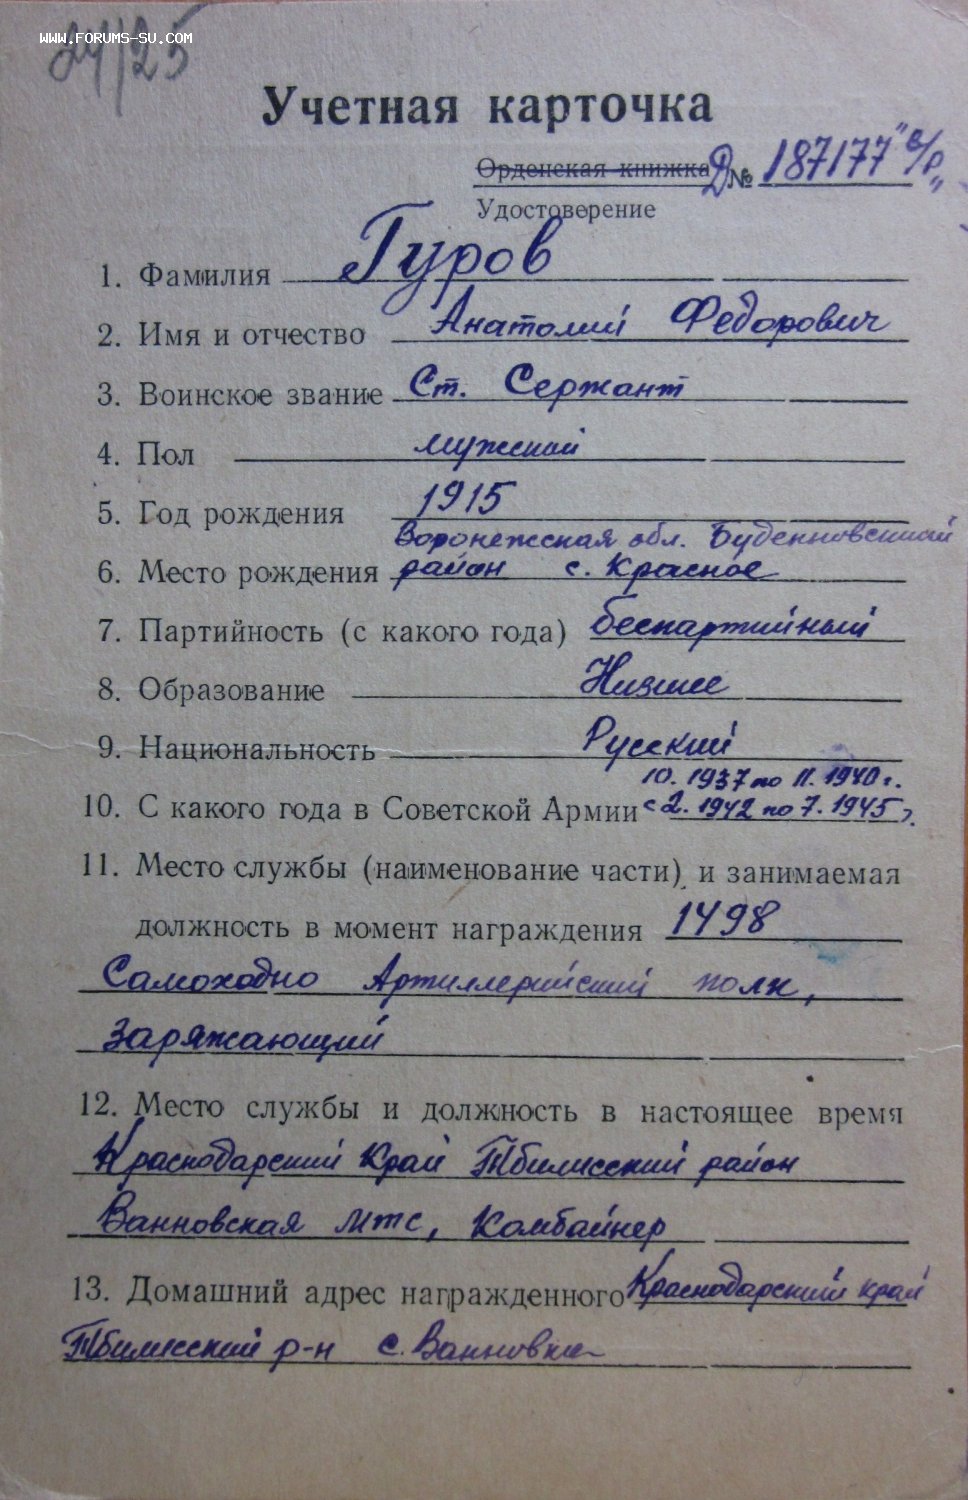 WWW.FORUMS-SU.COM
24/25
Учетная карточка
Орденская книжка Д № 187177 "с/р"
Удостоверение
1. Фамилия Гуров
2. Имя и отчество Анатолий Федорович
3. Воинское звание Ст. Сержант
4. Пол мужской
5. Год рождения 1915
Воронежская обл. Буденновский
6. Место рождения район с. Красное
7. Партийность (с какого года) беспартийный
8. Образование Низшее
9. Национальность Русский
10. 1937 по 11. 1940 г.
10. С какого года в Советской Армии с 2. 1942 по 7. 1945 г.
11. Место службы (наименование части) и занимаемая
должность в момент награждения 1498
Самоходно Артиллерийский полк,
Заряжающий
12. Место службы и должность в настоящее время
Краснодарский Край Тбилисский район
Ванновская мтс, Комбайнер
13. Домашний адрес награжденного Краснодарский край
Тбилисский р-н с. Ванновка